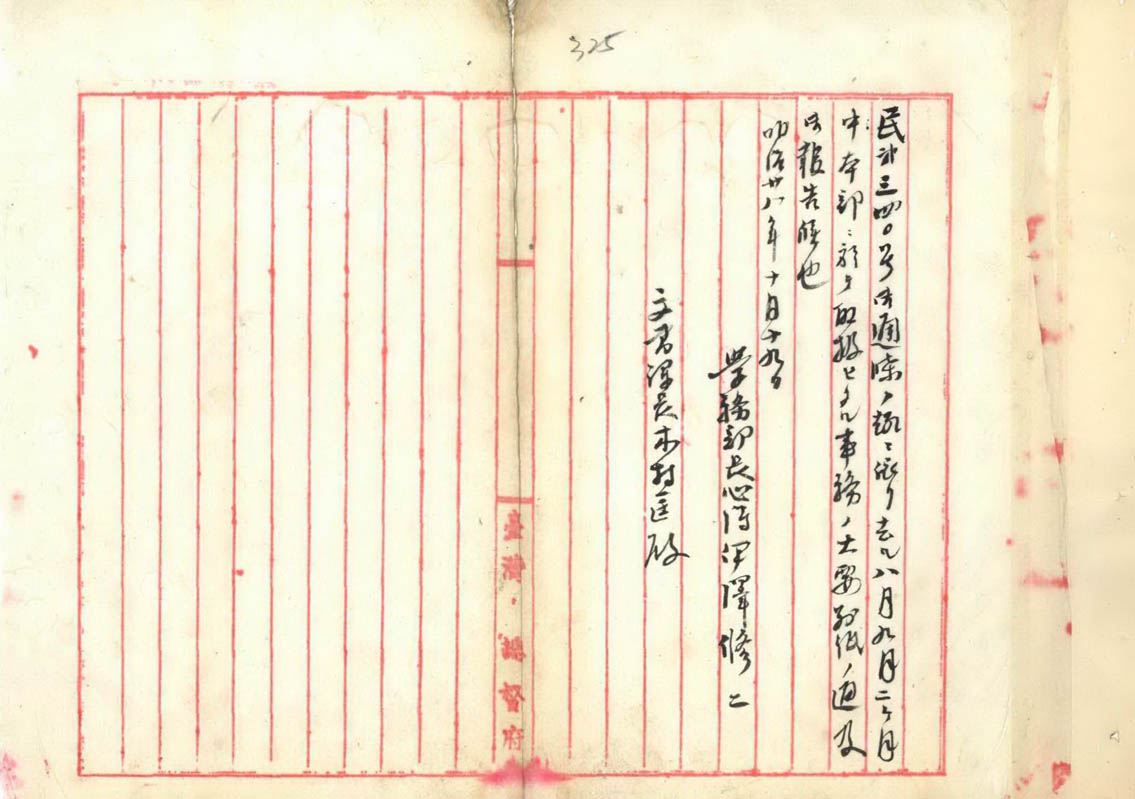 325
民第三四〇号御通牒ノ趣ニ依リ去ル八月九月二ヶ月
中本部ニ於テ取扱ヒタル事務ノ大要別紙ノ通及
御報告候也
明治廿八年十月十九日
学務部長心得伊澤修二
文書課長木村匡殿
臺灣總督府